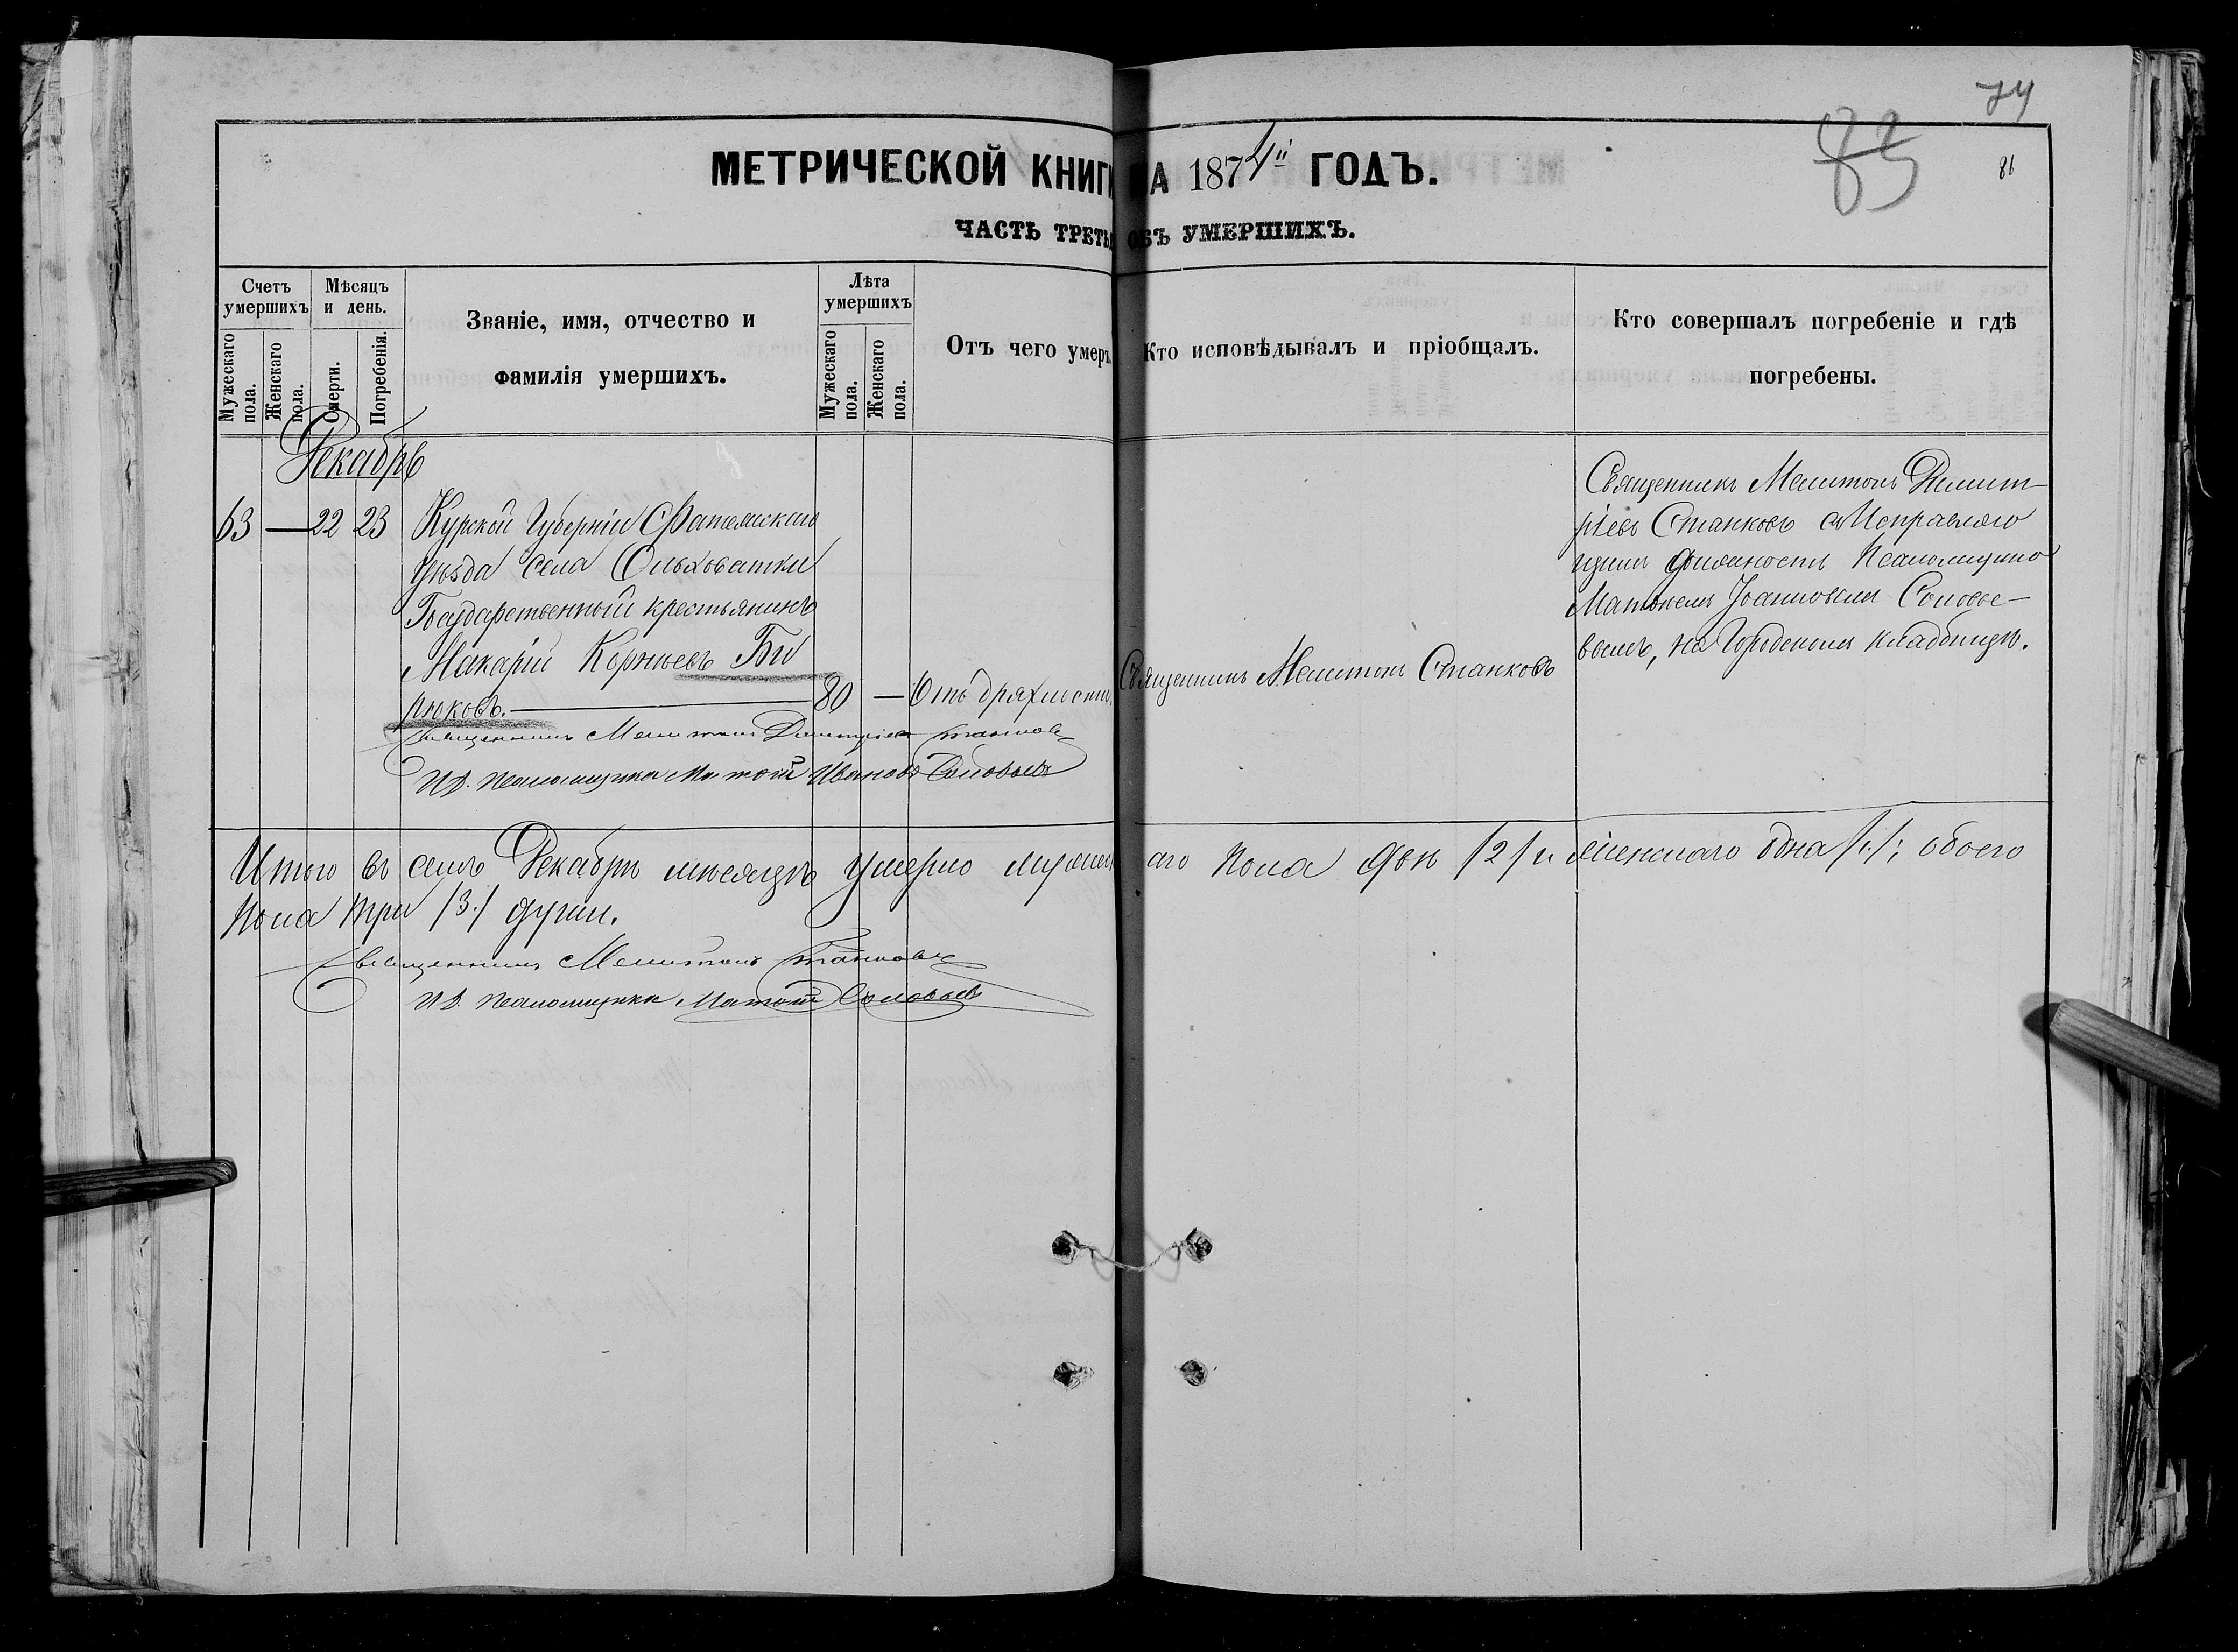 74
83
86
МЕТРИЧЕСКОЙ КНИГИ НА 1874й ГОДЪ.
ЧАСТЬ ТРЕТЬЯ ОБЪ УМЕРШИХЪ.
Счетъ умершихъ
Мужескаго пола.
Женскаго пола.
Мѣсяцъ и день.
Смерти.
Погребенія.
Званіе, имя, отчество и
фамилія умершихъ.
Лѣта умершихъ
Мужескаго пола.
Женскаго пола.
Отъ чего умеръ
Кто исповѣдывалъ и пріобщалъ.
Кто совершалъ погребеніе и гдѣ
погребены.
Декабрь
63 — 22 23 Курской Губерніи Фатежскаго
уѣзда села Ольховатки
Государственный крестьянинъ
Макарій Корнѣевъ Би
рюковъ. — 80 — Отъ дряхлости.
Священникъ Мелитонъ Станковъ
Священникъ Мелитонъ Димит-
ріевъ Станковъ съ Исправляю
щимъ должность Псаломщика
Матѳеемъ Іоанновымъ Соловье-
вымъ, на Городскомъ кладбищѣ.
Священникъ Мелитонъ Димитріевъ Станковъ
И.д. псаломщика Матѳей Ивановъ Соловьевъ
Итого въ семъ Декабрѣ мѣсяцѣ умерло мужескаго пола два /2/ и женскаго одна /1/; обоего
пола три /3/ души.
Священникъ Мелитонъ Станковъ
И.д. псаломщика Матѳей Соловьевъ